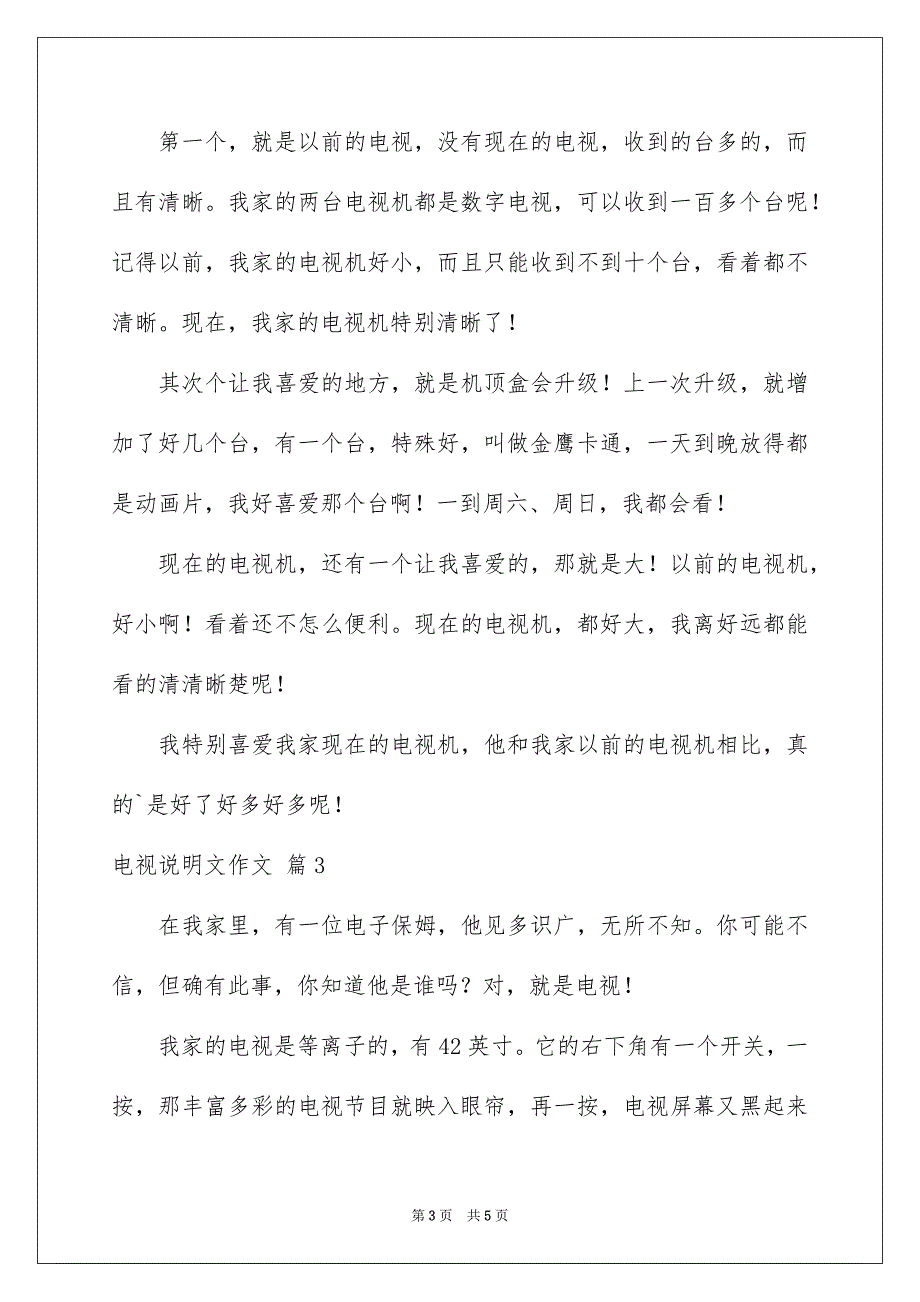 第一个，就是以前的电视，没有现在的电视，收到的台多的，而
且有清晰。我家的两台电视机都是数字电视，可以收到一百多个台呢！
记得以前，我家的电视机好小，而且只能收到不到十个台，看着都不
清晰。现在，我家的电视机特别清晰了！
其次个让我喜爱的地方，就是机顶盒会升级！上一次升级，就增
加了好几个台，有一个台，特殊好，叫做金鹰卡通，一天到晚放得都
是动画片，我好喜爱那个台啊！一到周六、周日，我都会看！
现在的电视机，还有一个让我喜爱的，那就是大！以前的电视机，
好小啊！看着还不怎么便利。现在的电视机，都好大，我离好远都能
看的清清晰楚呢！
我特别喜爱我家现在的电视机，他和我家以前的电视机相比，真
的`是好了好多好多呢！
电视说明文作文 篇3
在我家里，有一位电子保姆，他见多识广，无所不知。你可能不
信，但确有此事，你知道他是谁吗？对，就是电视！
我家的电视是等离子的，有42英寸。它的右下角有一个开关，一
按，那丰富多彩的电视节目就映入眼帘，再一按，电视屏幕又黑起来
第3页 共5页